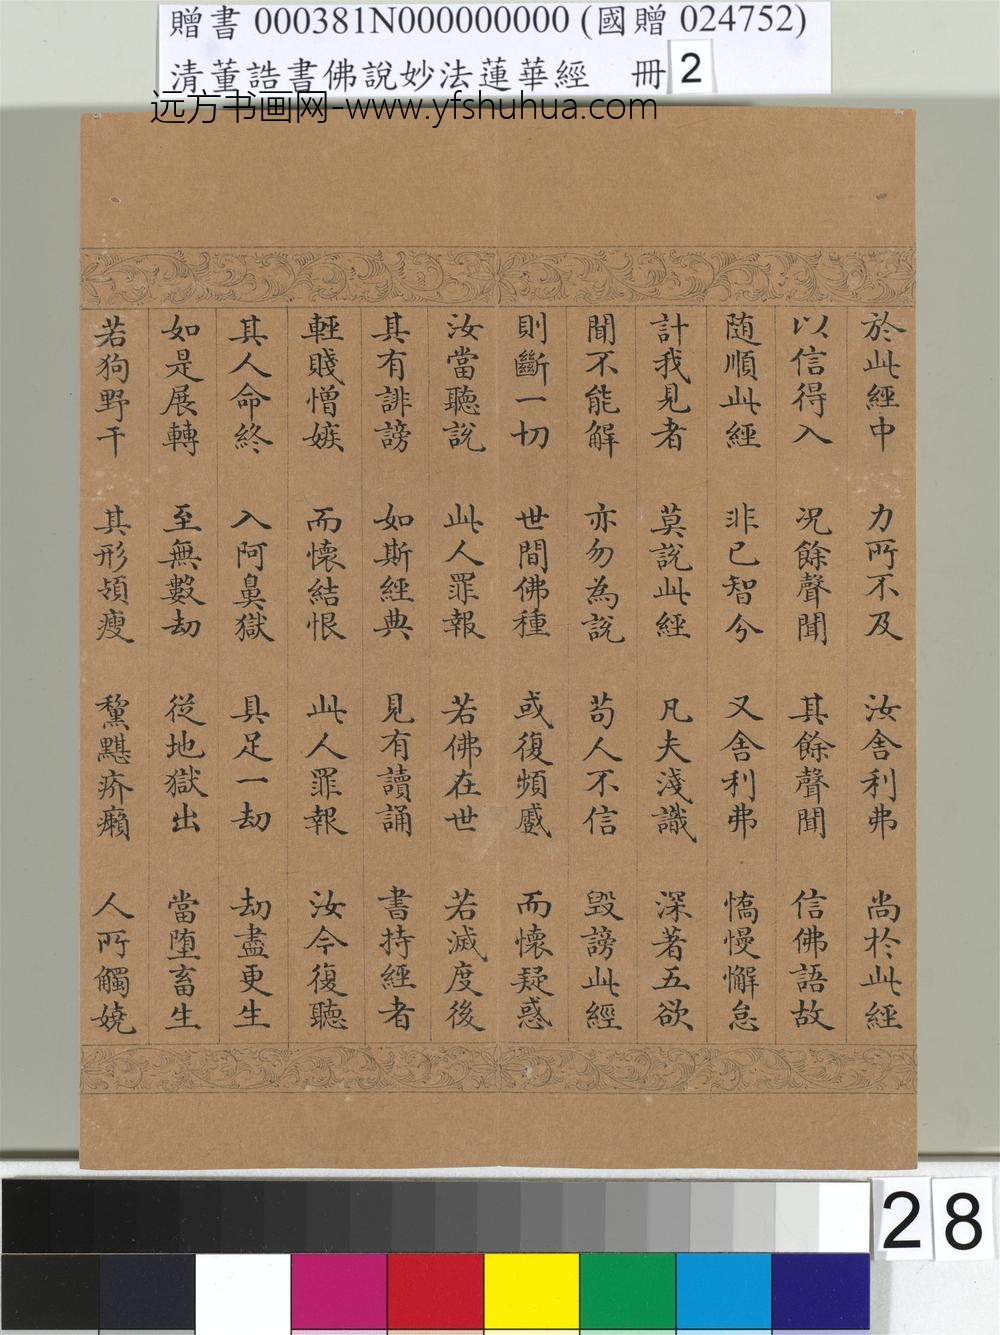 贈書 000381N000000000 (國贈 024752)
清董誥書佛說妙法蓮華經 冊 2
远方书画网-www.yfshuhua.com
於此經中 力所不及 汝舍利弗 尚於此經
以信得入 況餘聲聞 其餘聲聞 信佛語故
隨順此經 非己智分 又舍利弗 憍慢懈怠
計我見者 莫說此經 凡夫淺識 深著五欲
聞不能解 亦勿為說 苟人不信 毀謗此經
則斷一切 世間佛種 或復頻蹙 而懷疑惑
汝當聽說 此人罪報 若佛在世 若滅度後
其有誹謗 如斯經典 見有讀誦 書持經者
輕賤憎嫉 而懷結恨 此人罪報 汝今復聽
其人命終 入阿鼻獄 具足一劫 劫盡更生
如是展轉 至無數劫 從地獄出 當墮畜生
若狗野干 其形頷瘦 黧黮疥癩 人所觸嬈
28